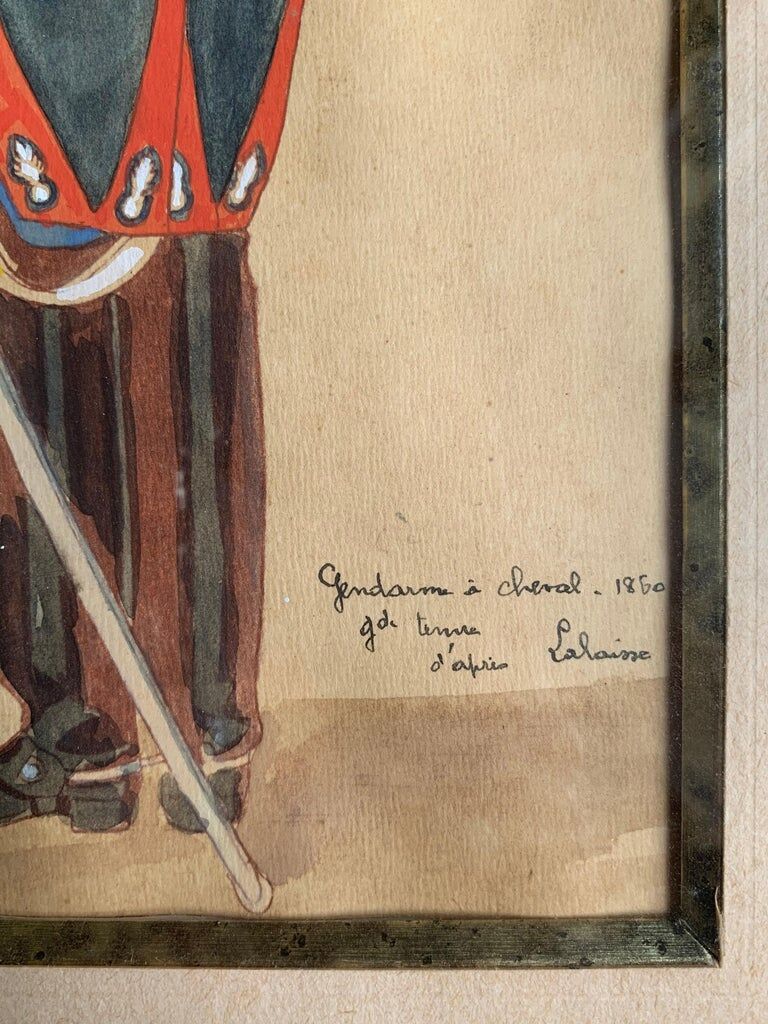 Gendarme à cheval - 1860
gde tenue
d'après Lalaisse